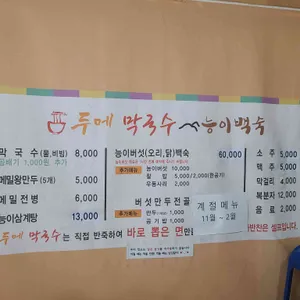 두메 막국수 능이백숙
막 국 수 (물,비빔) 8,000
곱배기 1,000원 추가
메밀왕만두 (5개) 5,000
메 밀 전 병 6,000
능이삼계탕 13,000
능이버섯(오리,닭)백숙 60,000
추가메뉴 능이버섯 10,000
찰 밥 5,000/2,000(현공기)
우동사리 2,000
버섯만두전골
추가메뉴 만두
공기밥 1,000
계절메뉴
11월 - 2월
소 주 5,000
맥 주 5,000
막걸리 4,000
복분자 12,000
음 료 2,000
두메 막국수는 직접 반죽하여 바로 뽑은 면만
반찬은 셀프입니다